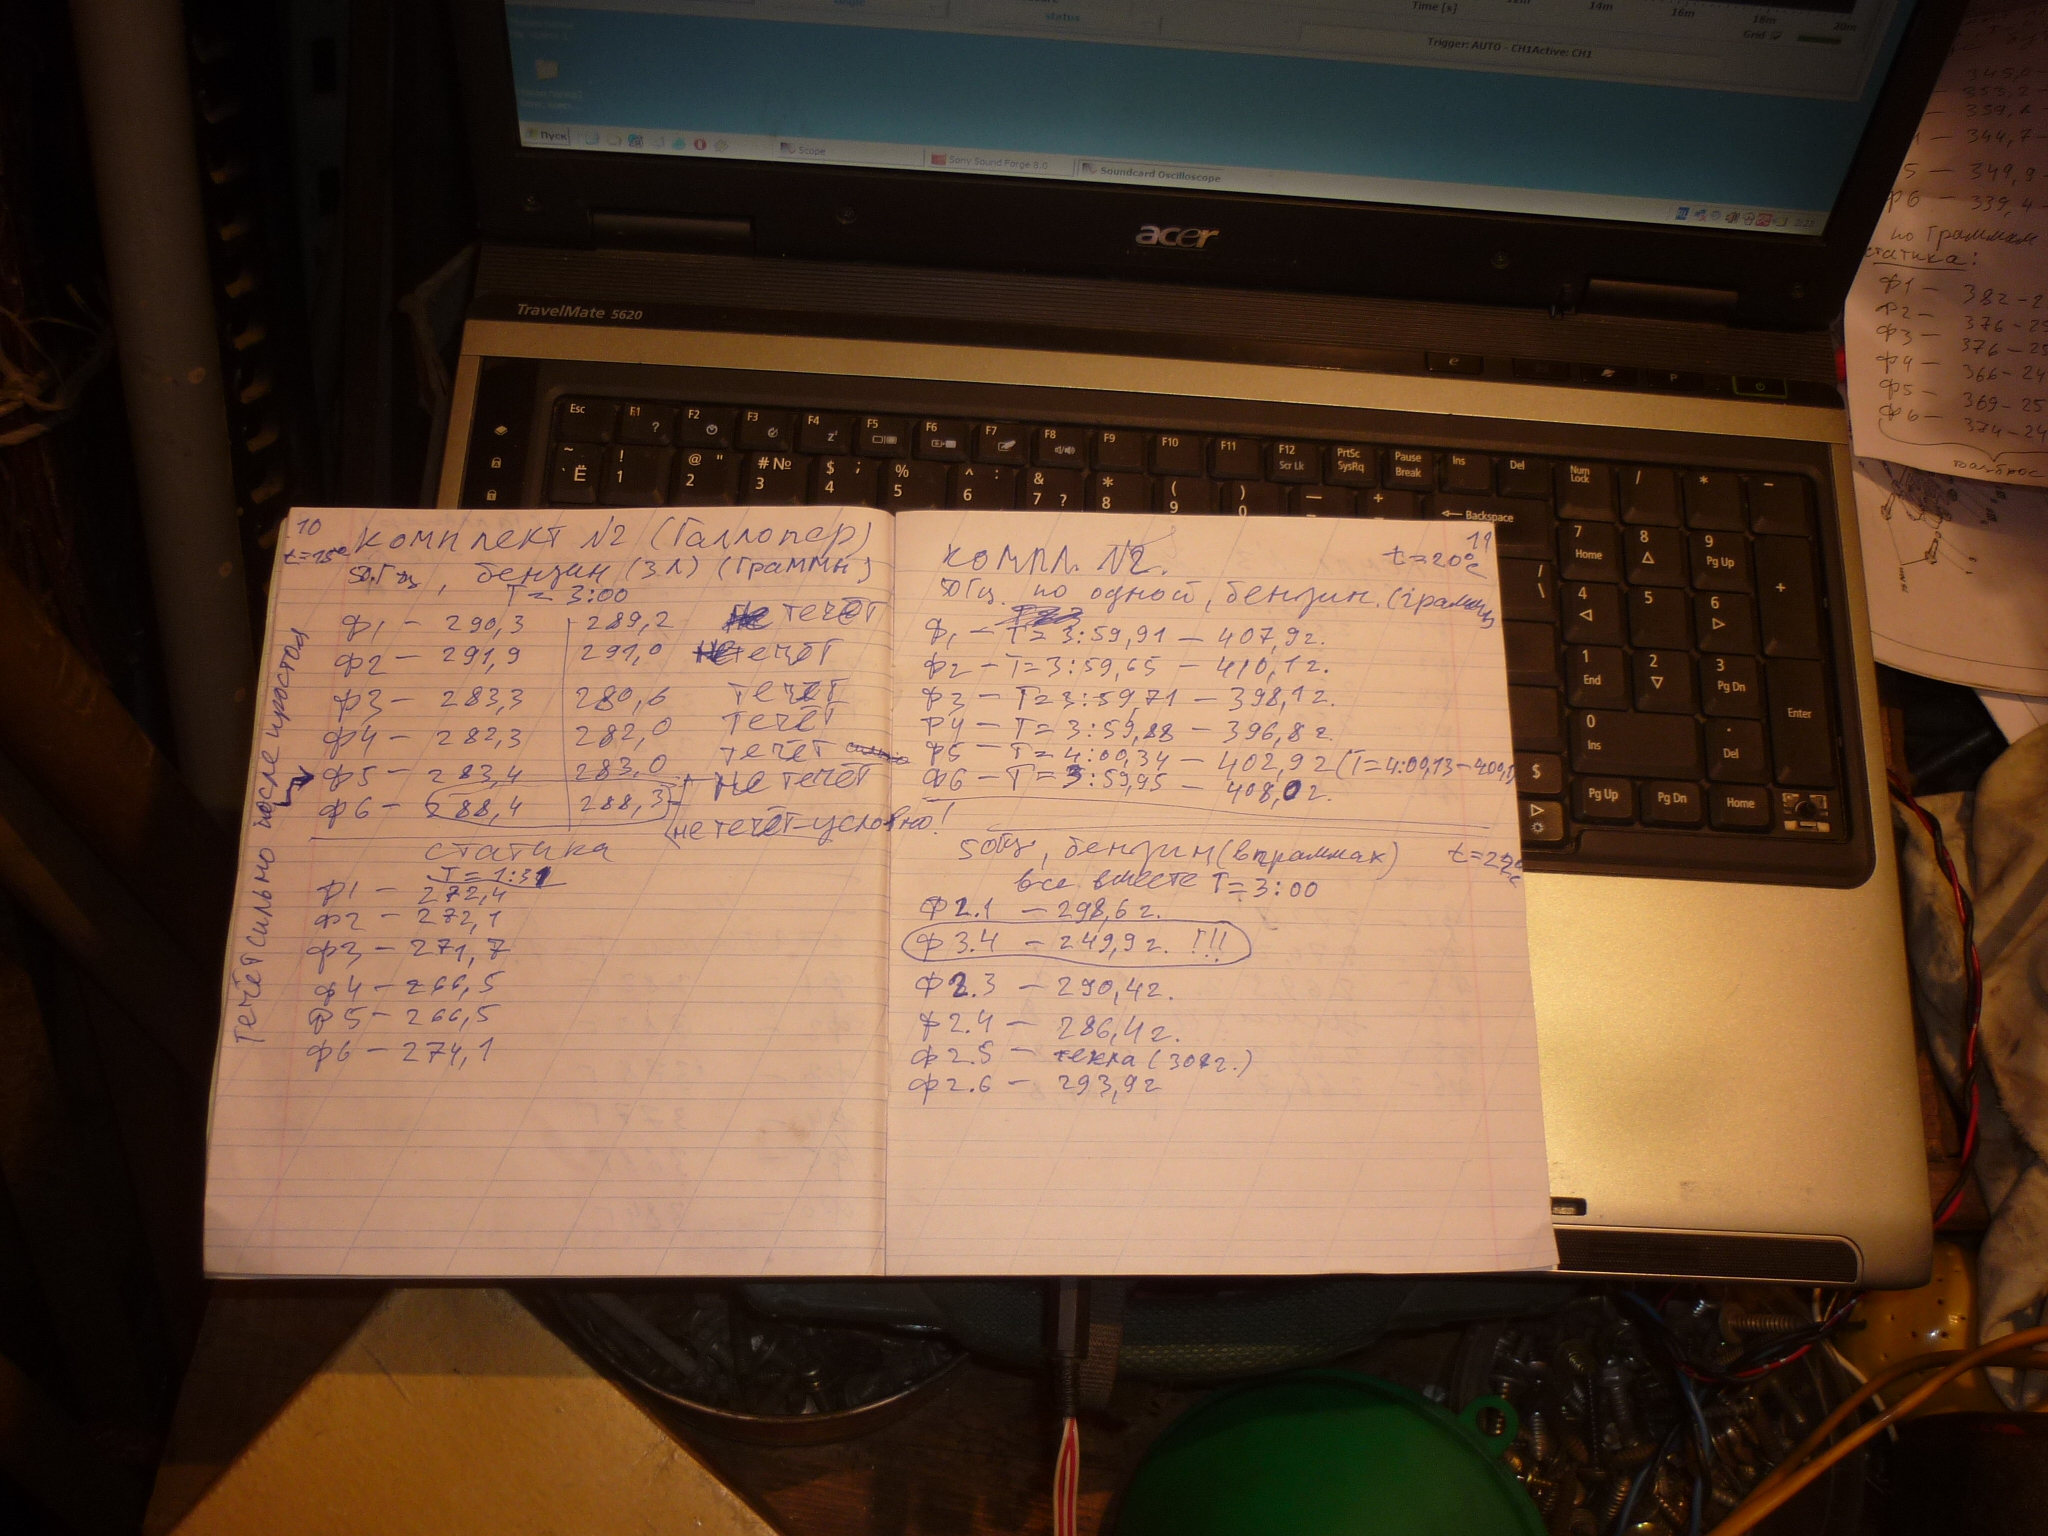 Time [s]
14m
16m
18m
20m
Grid
status
Trigger: AUTO - CH1Active: CH1
Пуск
Scope
Sony Sound Forge 8.0
Soundcard Oscilloscope
acer
TravelMate 5620
Esc F1 F2 F3 F4 F5 F6 F7 F8 F9 F10 F11 F12 PrtSc Pause Ins Del Num / * -
Scr Lk SysRq Break Lock
~ ! @ " # № $ ; % ^ : & * ( ) — +
` Ё 1 2 3 4 5 6 7 ? 8 9 0 ← Backspace
7 8 9
Home Pg Up +
4 5 6
1 2 3
End Pg Dn
0 . Enter
Ins Del
$ Pg Up Pg Dn Home
353,2
344,7-
5 — 349,9-
ф6 — 339,4-
по граммам
статика:
ф1 — 382-2
ф2- 376-25
ф3 — 376-25
ф4 — 366-24
ф5 — 369-25
ф6 — 374-24
10
комплект №2 (Галлопер)
t=15°
50Гц, бензин (3л) (граммы)
T= 3:00
ф1 — 290,3 289,2 течёт
ф2 — 291,9 291,0 течёт
ф3 — 283,3 280,6 течёт
ф4 — 282,3 282,0 течёт
ф5 — 283,4 283,0 течёт
ф6 — 288,4 288,3 не течёт
не течёт-условно!
статика
T= 1:31
ф1 — 272,4
ф2 — 272,1
ф3 — 271,7
ф4 — 266,5
ф5 — 266,5
ф6 — 274,1
течёт сильно после простоя
11
компл. №2. t=20°c
50Гц по одной, бензин. (граммы)
ф1 — T= 3:59,91 — 407,9г.
ф2 — T=3:59,65 — 410,1г.
ф3 — T=3:59,71 — 398,1г.
ф4 — T= 3:59,88 — 396,8г.
ф5 — T= 4:00,34 — 402,9г (T=4:00,13-400,1)
ф6 — T= 3:59,95 — 408,0г.
50Гц, бензин (в граммах) t=22°c
все вместе T=3:00
ф2.1 — 298,6г.
ф3.4 — 249,9г. !!!
ф2.3 — 290,4г.
ф2.4 — 286,4г.
ф2.5 — текла (301г.)
ф2.6 — 293,9г